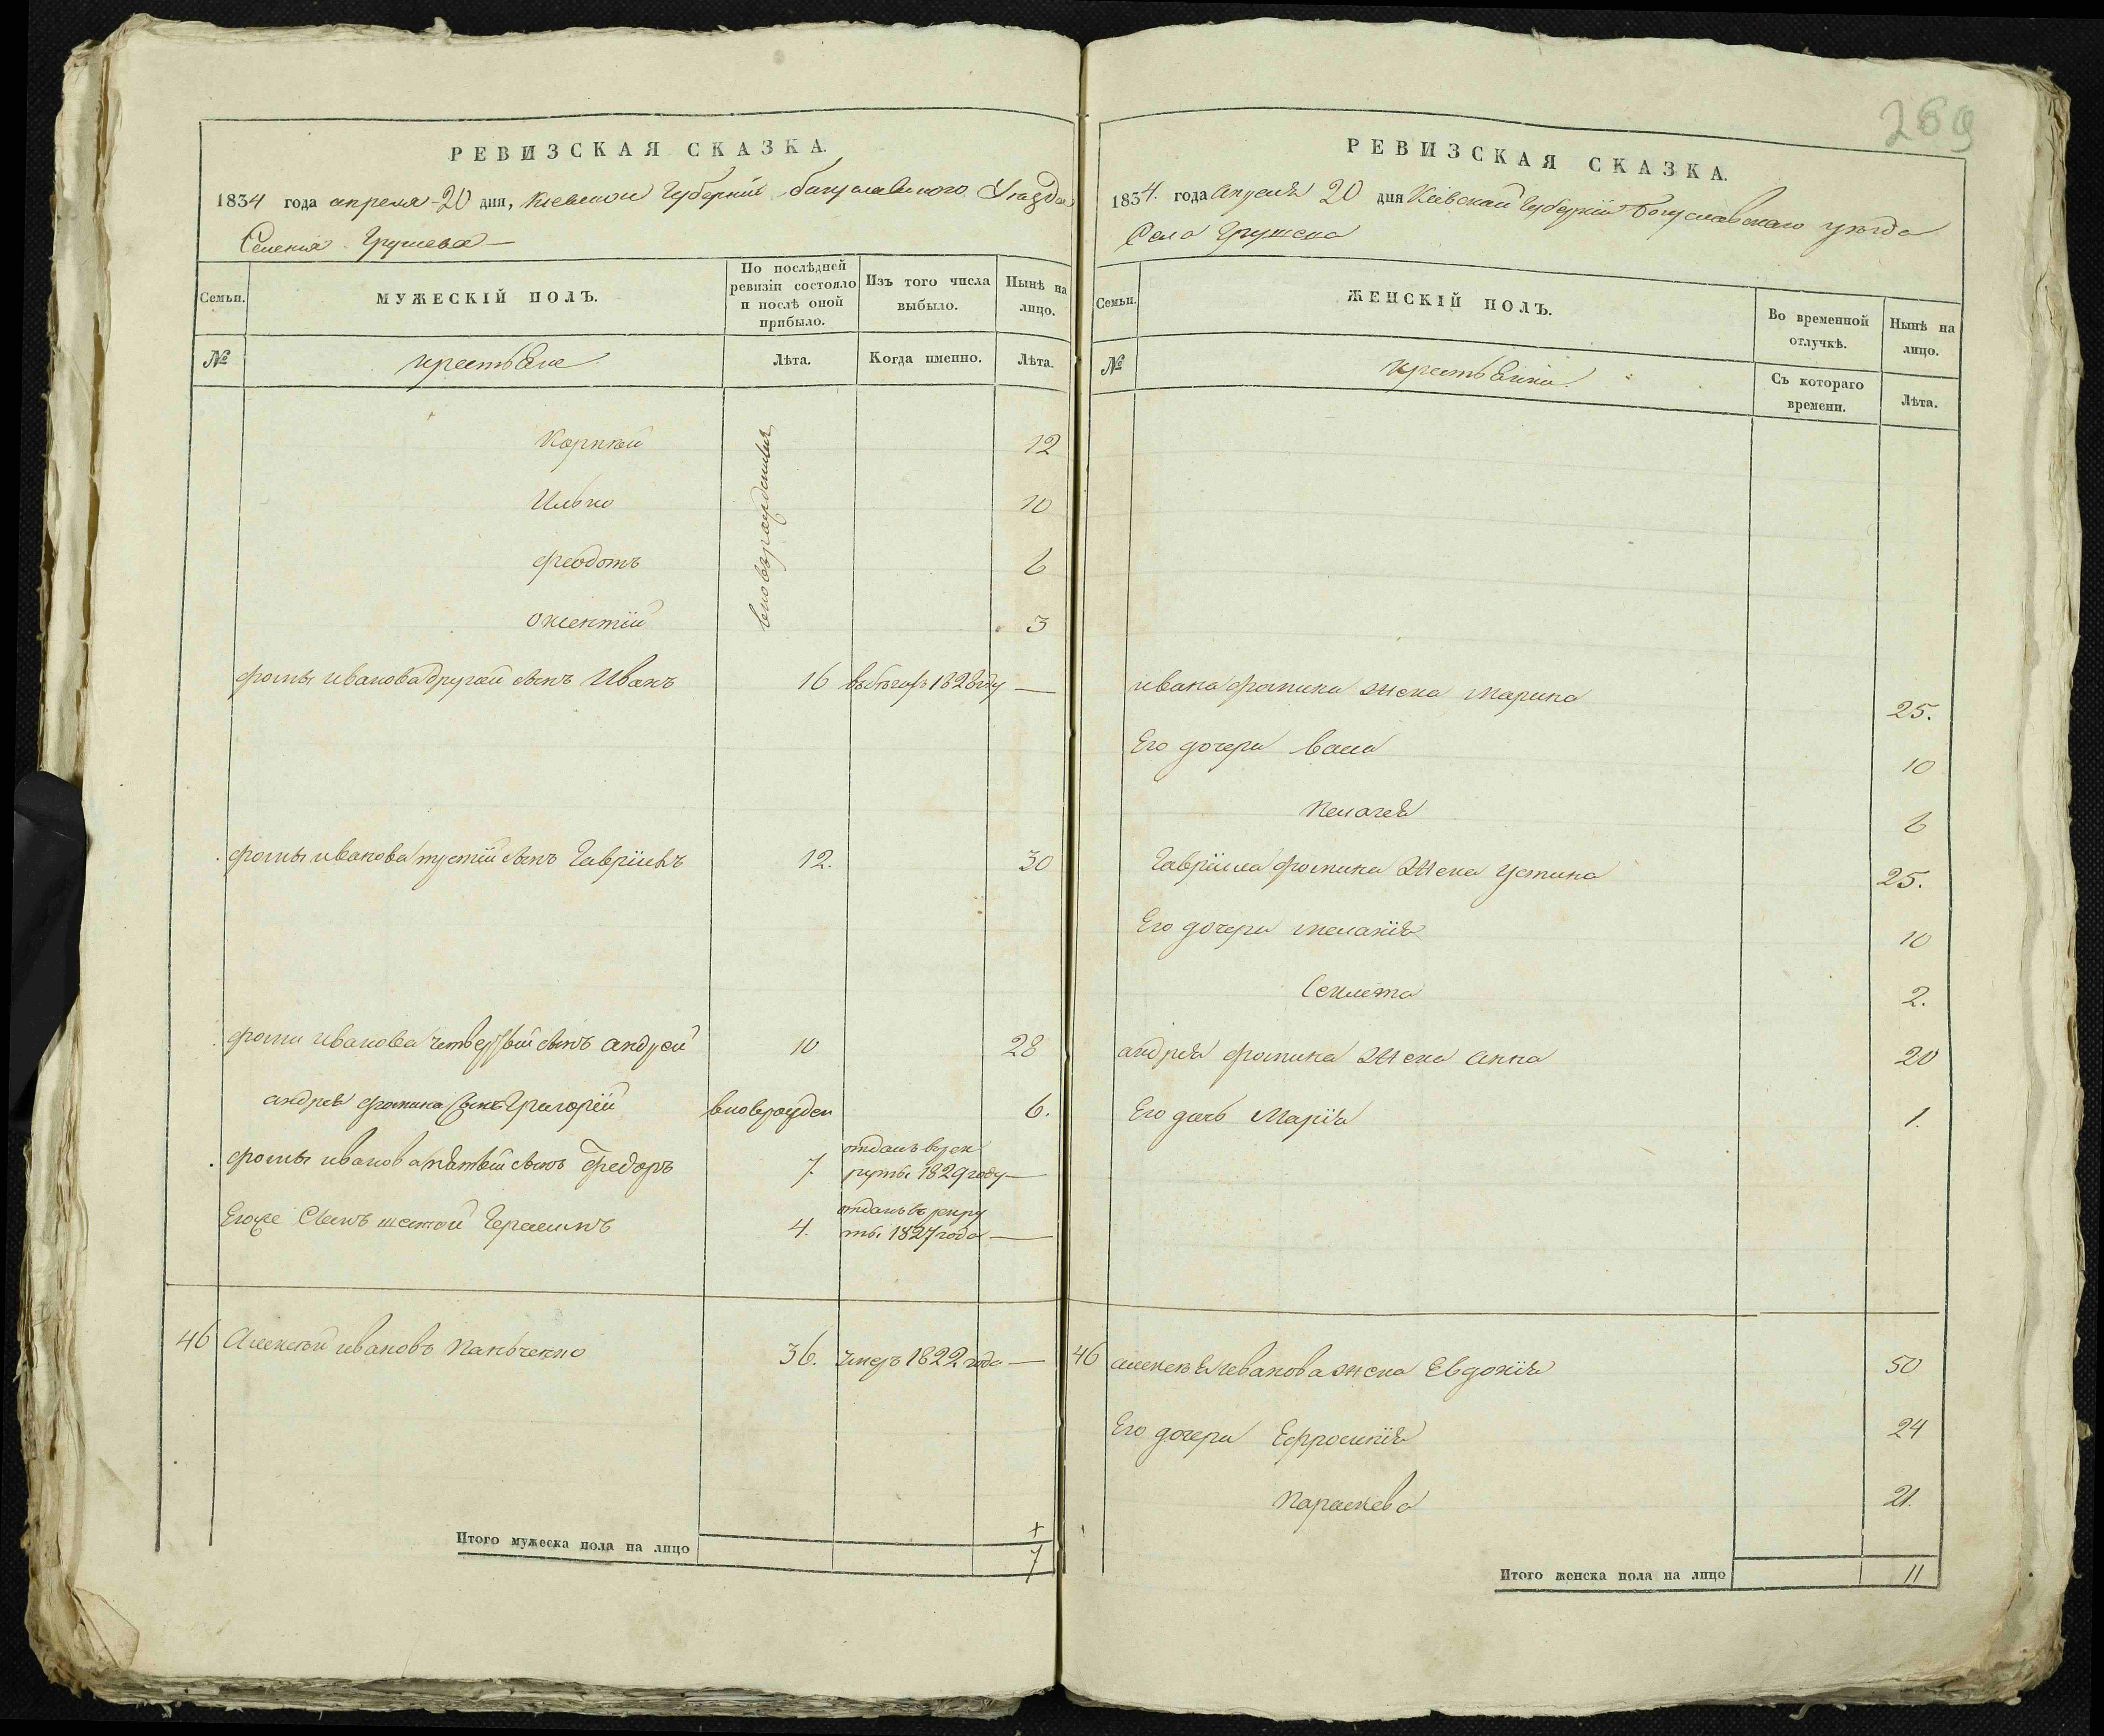 РЕВИЗСКАЯ СКАЗКА.
1834 года апреля 20 дня, Киевской Губернии Богуславского Уѣзда
Селения Грушева
Семьи.
МУЖЕСКІЙ ПОЛЪ.
По послѣдней ревизіи состояло и послѣ оной прибыло.
Изъ того числа выбыло.
Нынѣ на лицо.
№
крестьяне
Лѣта.
Когда именно.
Лѣта.
Корнѣй 12
Илько 10
Феодотъ 6
3
фомы иванова другой сынъ Иванъ 16 1828 году —
фомы иванова третій сынъ Гавріилъ 12. 30
фомы иванова четвертый сынъ андрей 10 28
андрея фомина сынъ Григорій 6.
фомы иванова пятый сынъ Федоръ 7 отданъ в рекруты 1829 году —
Егоже Сынъ шестой Герасимъ 4. отданъ въ рекруты 1827 года —
46 Алексѣй ивановъ Панченко 36. умеръ 1822 года —
Итого мужеска пола на лицо 7
269
РЕВИЗСКАЯ СКАЗКА.
1834. года Апреля 20 дня Кіевской Губерніи Богуславскаго уѣзда
Села
Семьи.
ЖЕНСКІЙ ПОЛЪ.
Во временной отлучкѣ.
Нынѣ на лицо.
№
Съ котораго времени.
Лѣта.
ивана фомина жена марина 25.
Его дочери 10
Пелагея 6
Гавріила фомина жена устина 25.
Его дочери меланія 10
Секлета 2.
андрея фомина жена анна 20
Его дочь Марія 1.
46 алексея иванова жена Евдокія 50
Его дочери Ефросинія 24
Параскева 21.
Итого женска пола на лицо 11